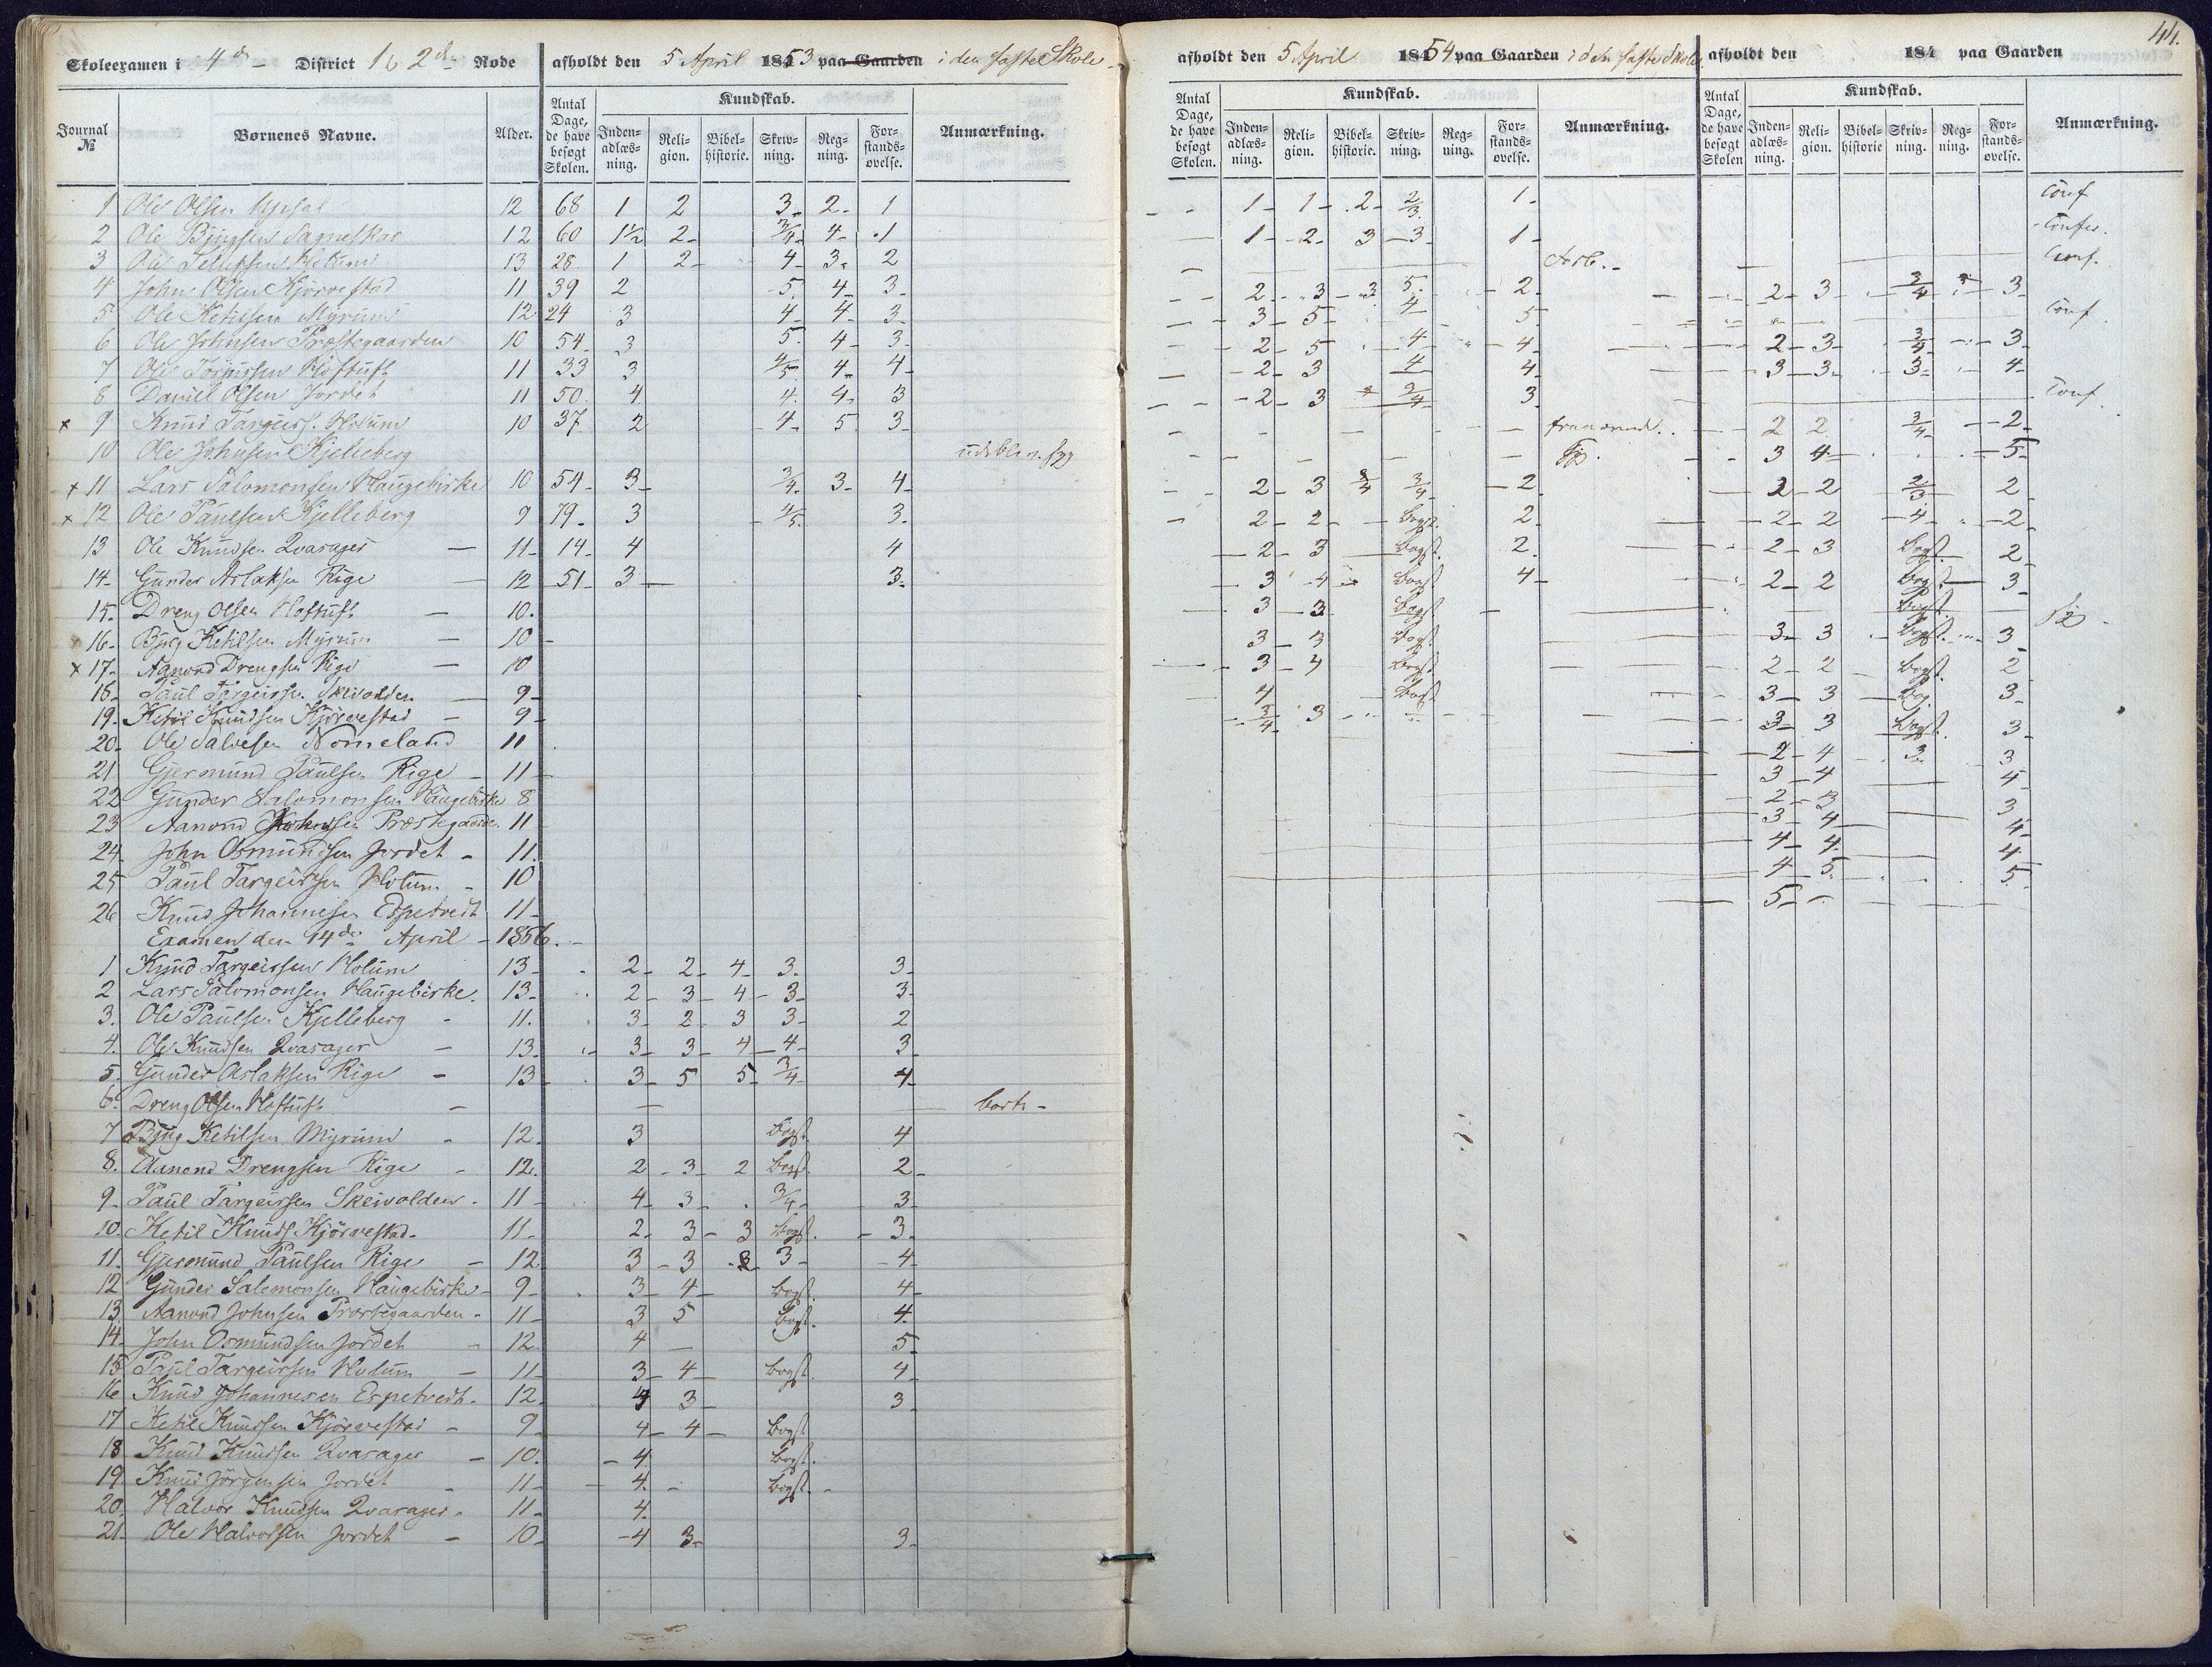 Skoleexamen i 4de District 1 & 2den Rode afholdt den 5 April 1853 paa Gaarden i den faste Skole
afholdt den 5 April 1854 paa Gaarden i den faste Skole afholdt den 184 paa Gaarden
44.
Journal № Børnenes Navne. Alder. Antal Dage, de have besøgt Skolen. Kundskab. Inden-adlæs-ning. Reli-gion. Bibel-historie. Skriv-ning. Reg-ning. For-stands-øvelse. Anmærkning.
Antal Dage, de have besøgt Skolen. Kundskab. Inden-adlæs-ning. Reli-gion. Bibel-historie. Skriv-ning. Reg-ning. For-stands-øvelse. Anmærkning.
Antal Dage, de have besøgt Skolen Kundskab. Inden-adlæs-ning. Reli-gion. Bibel-historie Skriv-ning. Reg-ning. For-stands-øvelse. Anmærkning.
1 Ole Olsen 12 68 1 2 3 2 1 1 1 2 2/3 1 Conf
2 Ole 12 60 1½ 2 3/4 4 1 1 2 3 3 1 Confir.
3 Ole Holum 13 28 1 2 4 3 2 Conf.
4 John Olsen Kjörvestad 11 39 2 5 4 3 2 3 3 5 2 2 3 3/4 3
5 Ole Ketilsen Myrum 12 24 3 4 4 3 3 5 4 5 Conf
6 Ole Johnsen Præstegaarden 10 54 3 5 4 3 2 5 4 4 2 3 3/4 3
7 Ole Hoftuft 11 33 3 4/5 4 4 2 3 4 4 3 3 3 4
8 Daniel Olsen Jordet 11 50 4 4 4 3 2 3 3/4 3 Conf.
x 9 Knud Targeirs. Holum 10 37 2 4 5 3 2 2 3/4 2
10 Ole Johnsen Kjelleberg 3 4 5
x 11 Lars Salomonsen Haugebirke 10 54 3 3/4 3 4 2 3 3/4 3/4 2 2 2 2/3 2
x 12 Ole Paulsen Kjelleberg 9 79 3 4/5 3 2 2 bogst. 2 2 2 4 2
13 Ole Knudsen Qvasager 11 14 4 4 2 3 bogst. 2 2 3 bogst. 2
14 Gunder Aslaksen Rige 12 51 3 3 3 4 bogst 4 2 2 bogst 3
15 Dreng Olsen Hoftuft 10. 3 3 bogst bogst
16 Bjug Ketilsen Myrum 10 3 3 bogst. 3 3 bogst. 3
x 17 Aanond Drengsen Rige 10 3 4 bogst. 2 2 bogst. 2
18 Paul Targeirsen Skeivolden 9 4 bogst 3 3 bog. 3
19 Ketil Knudsen Kjörvestad 9 3/4 3 3 3 bogst. 3
20 Ole Salvesen Nomeland 11 2 4 3 3
21 Gjermund Paulsen Rige 11 3 4 4
22 Gunder Salomonsen Haugebirke 8 2 3 3
23 Aanond Johnsen Præstegaarden 11 3 4 4
24 John Osmundsen Jordet 11 4 4 4
25 Paul Targeirsen Holum 10 4 5 5
26 Knud Johannesen Espetvedt 11 5
Examen den 14de April 1856.
1 Knud Targeirsen Holum 13 2 2 4 3 3
2 Lars Salomonsen Haugebirke 13 2 3 4 3 3
3. Ole Paulsen Kjelleberg 11. 3 2 3 3 2
4. Ole Knudsen Qvasager 13 3 3 4 4 3
5. Gunder Aslaksen Rige 13 3 5 5 3/4 4
6. Dreng Olsen Hoftuft borte
7 Bjug Ketilsen Myrum 12 3 bogst. 4
8. Aanond Drengsen Rige 12. 2 3 2 bogst. 2
9 Paul Targeirsen Skeivolden 11 4 3 3/4 3
10. Ketil Knuds. Kjörvestad 11 2 3 3 bogst. 3
11. Gjermund Paulsen Rige 12 3 3 3 3 4
12 Gunder Salomonsen Haugebirke 9 3 4 bogst. 4
13. Aanond Johnsen Præstegaarden 11 3 5 bogst. 4
14. John Osmundsen Jordet 12 4 5
15 Paul Targeirsen Holum 11 3 4 bogst. 4
16 Knud Johannesen Espetvedt 12 4 3 3
17 Ketil Knudsen Kjörvestad 9 4 4 bogst
18 Knud Knudsen Qvasager 10. 4 bogst.
19 Knud Jörgensen Jordet 11 4 bogst.
20. Halvor Knudsen Qvasager 11 4
21. Ole Halvorsen Jordet 10 4 3 3